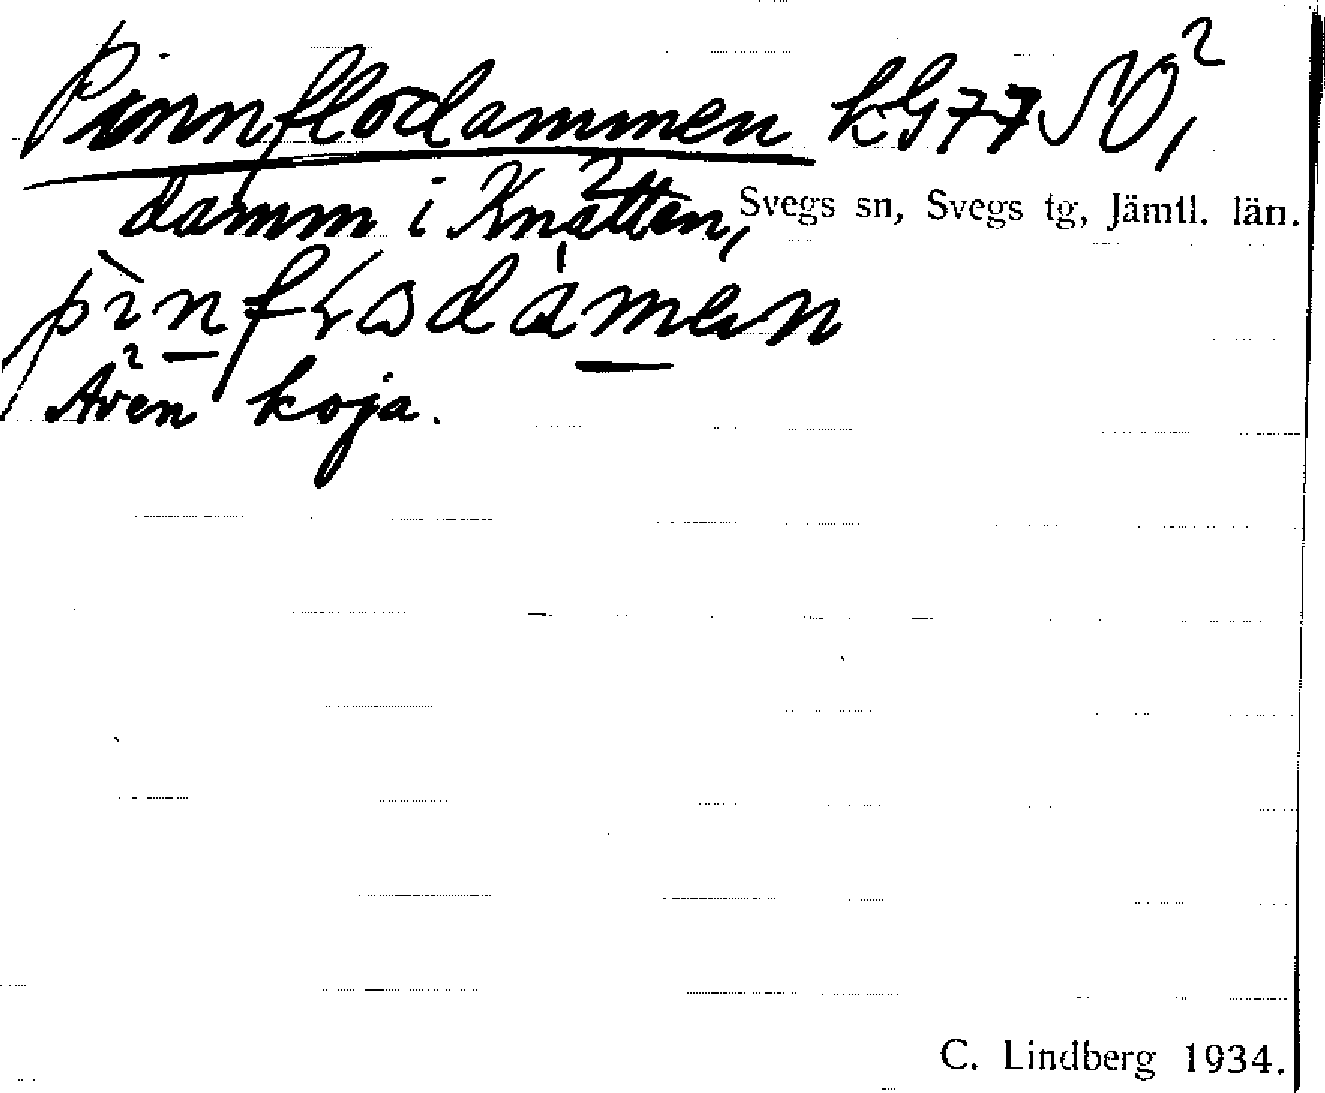 Pinnflodammen kG77SV,
damm i Knätten, Svegs sn, Svegs tg, Jämtl. län.
Även koja.
C. Lindberg 1934.